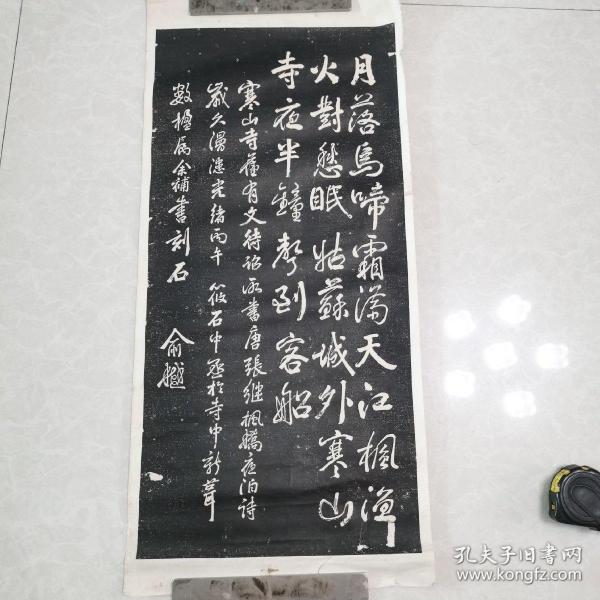 月落烏啼霜滿天江楓漁
火對愁眠姑蘇城外寒山
寺夜半鐘聲到客船
寒山寺舊有文待詔所書唐張繼楓橋夜泊詩
歲久漫漶光緒丙午筱石中丞於寺中新葺
數楹属余補書刻石
俞樾
孔夫子旧书网
www.kongfz.com